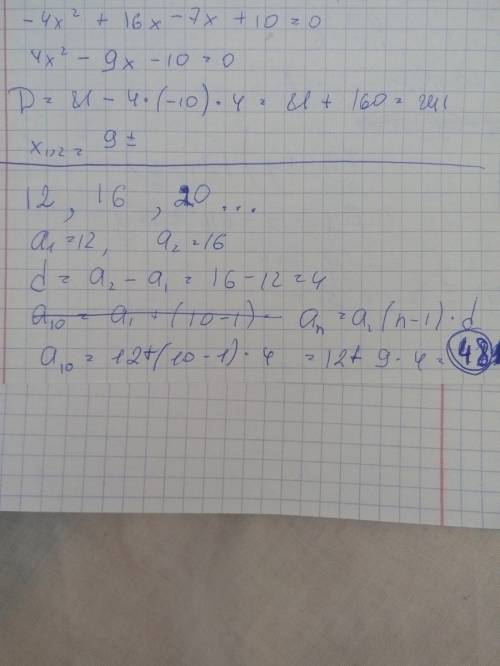 -4x² + 16x - 7x + 10 = 0
4x² - 9x - 10 = 0
D = 81 - 4·(-10)·4 = 81 + 160 = 241
x₁,₂ = 9 ±
12, 16, 20...
a₁ = 12, a₂ = 16
d = a₂ - a₁ = 16 - 12 = 4
a₁₀ = a₁ + (10-1)· aₙ = a₁(n-1)·d
a₁₀ = 12+(10-1)·4 = 12+9·4 = 48